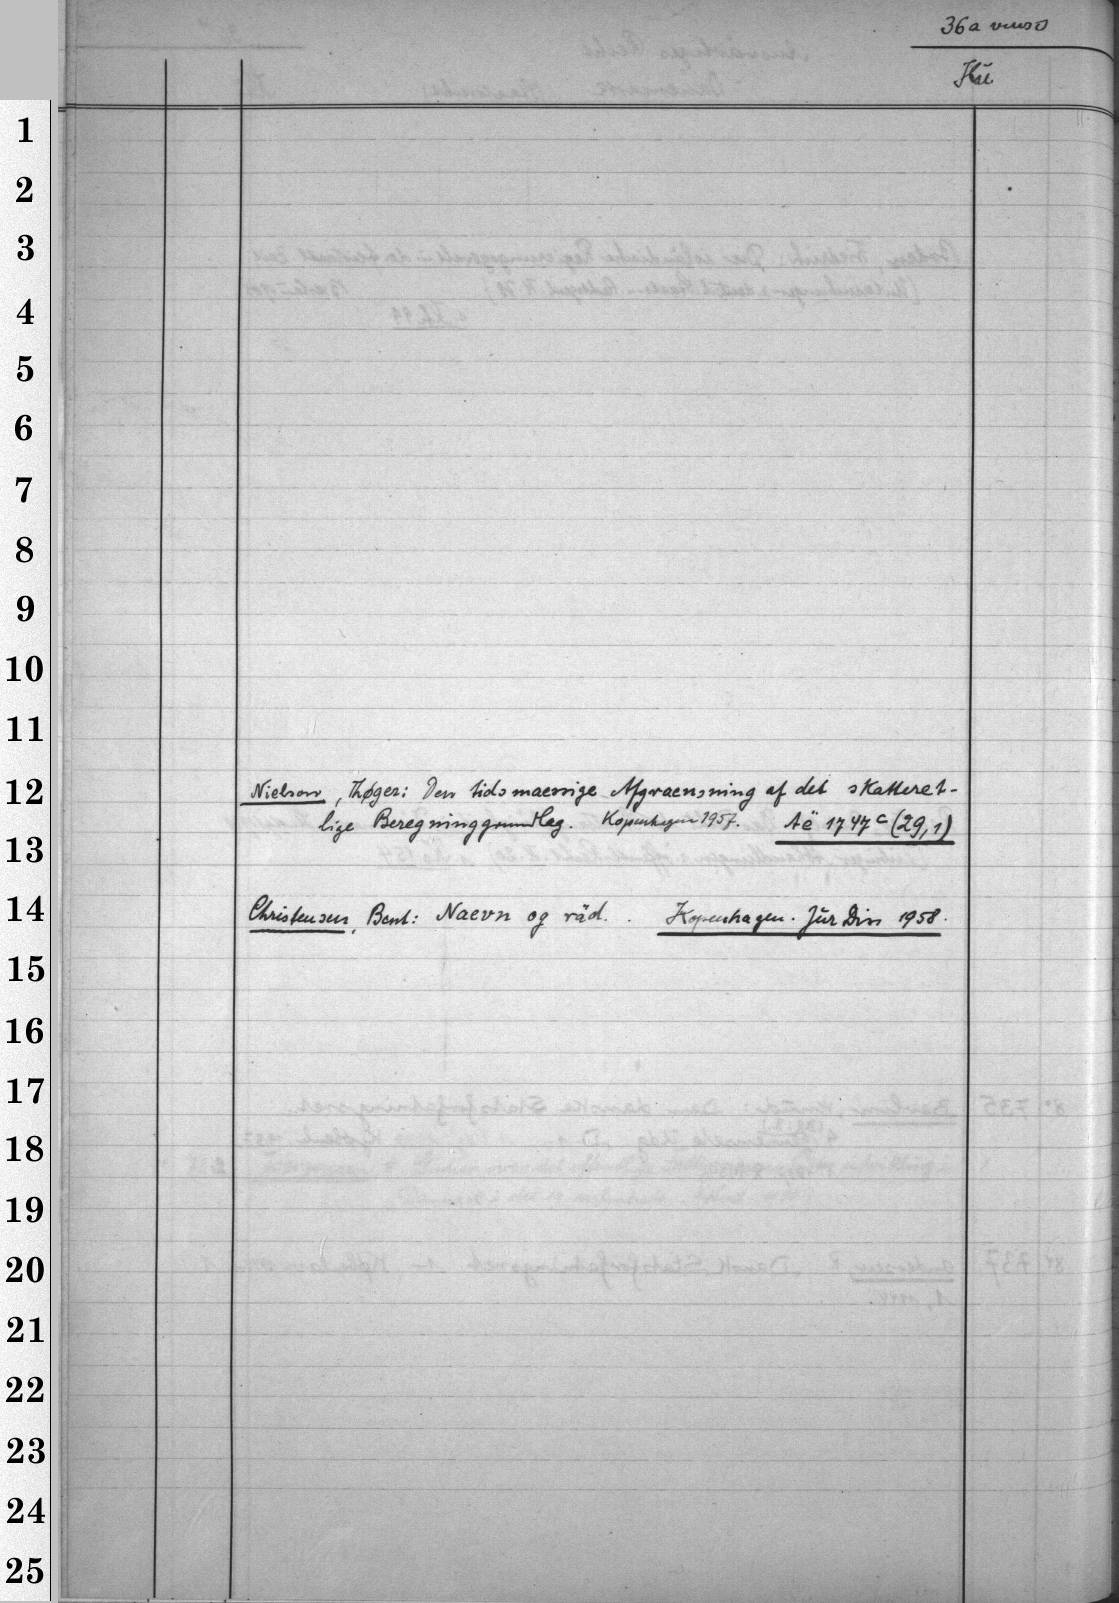 36a verso
Kü
1
2
3
4
5
6
7
8
9
10
11
12
Nielsen, Thøger: Den tidsmaessige Afgraensning af det skatteret-
lige Beregninggrundlag. Kopenhagen 1957. Aë 1747ᶜ (29,1)
13
14
Christensen, Bent: Naevn og råd. . Kopenhagen. Jur Diss 1958.
15
16
17
18
19
20
21
22
23
24
25